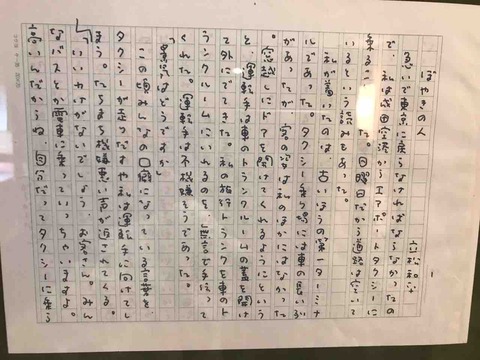 ぼやきの人
急いで東京に戻らなければならなかったの
で、私は羽田空港からエアポートタクシーに
乗るに た。日曜日だから道路は空いて
いるという読みもあった。
私が着いたのは、古いほうの第一ターミナ
ルであった。タクシー乗り場には車の
があり、客の姿は私のほかにはなかった。
窓越しにドアを開けてくれるようにという
と、運転手は車のトランクルームの蓋を開け
て外にでてきた。私の旅行トランクを車のト
ランクルームにいれるのを、無言で手伝って
くれた。運転手は不機嫌そうであった。
「景気はどうですか」
この頃みんなの口癖になっている言葉を、
タクシーが走りだすや私は運転手に向けてし
まう。たちまち不機嫌な声が返されてくる。
「いいわけがないでしょう、お客さん。みん
なバスとか電車に乗っていっちゃいますよ。
だってタクシーに乗ら